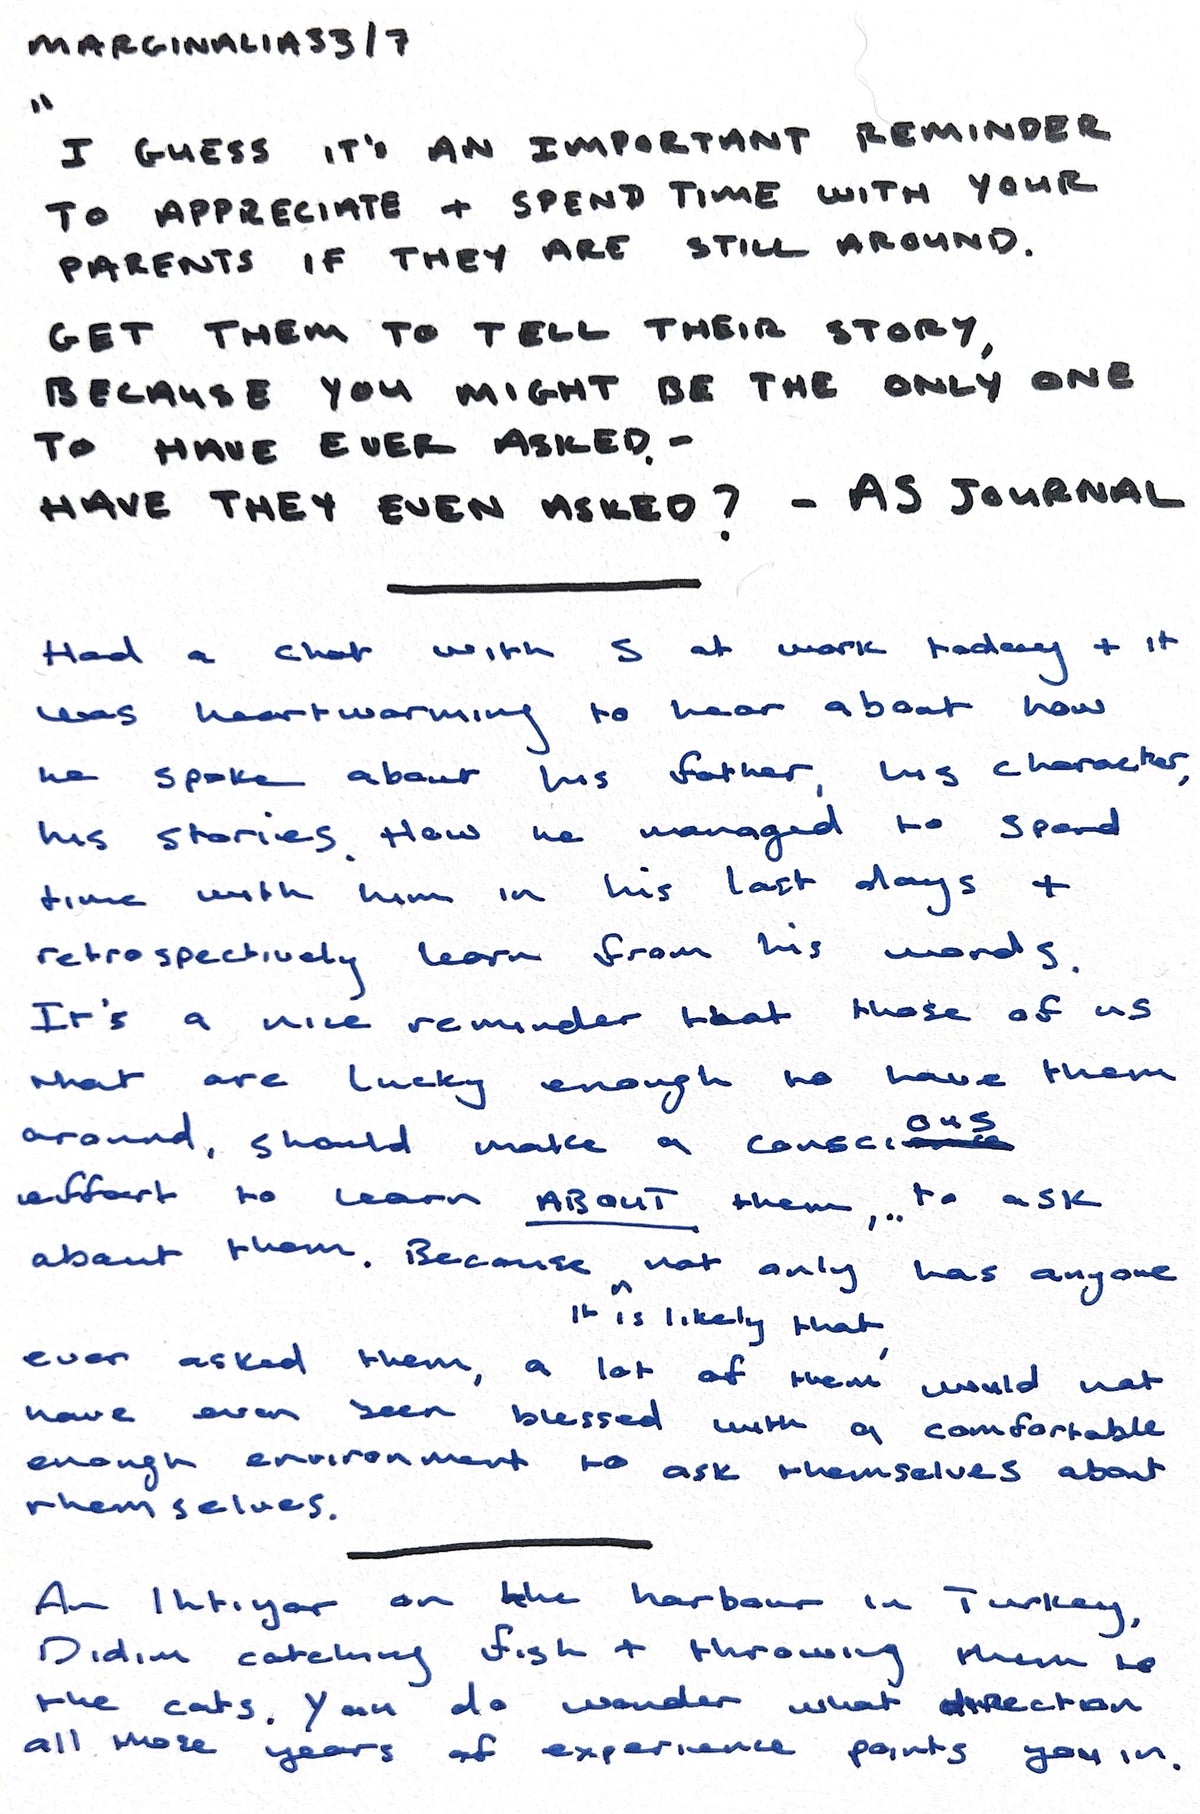 MARGINALIA33/7
"
I GUESS IT'S AN IMPORTANT REMINDER
TO APPRECIATE + SPEND TIME WITH YOUR
PARENTS IF THEY ARE STILL AROUND.
GET THEM TO TELL THEIR STORY,
BECAUSE YOU MIGHT BE THE ONLY ONE
TO HAVE EVER ASKED. -
HAVE THEY EVEN ASKED? - AS JOURNAL
Had a chat with S at work today + it
was heartwarming to hear about how
he spoke about his father, his character,
his stories. How he managed to spend
time with him in his last days +
retrospectively learn from his words.
It's a nice reminder that those of us
that are lucky enough to have them
around, should make a conscious
effort to learn ABOUT them,.. to ask
about them. Because ^ not only has anyone
it is likely that,
ever asked them, a lot of them would not
have even been blessed with a comfortable
enough environment to ask themselves about
themselves.
An Ihtiyar on the harbour in Turkey,
Didim catching fish + throwing them to
the cats. You do wonder what direction
all those years of experience points you in.